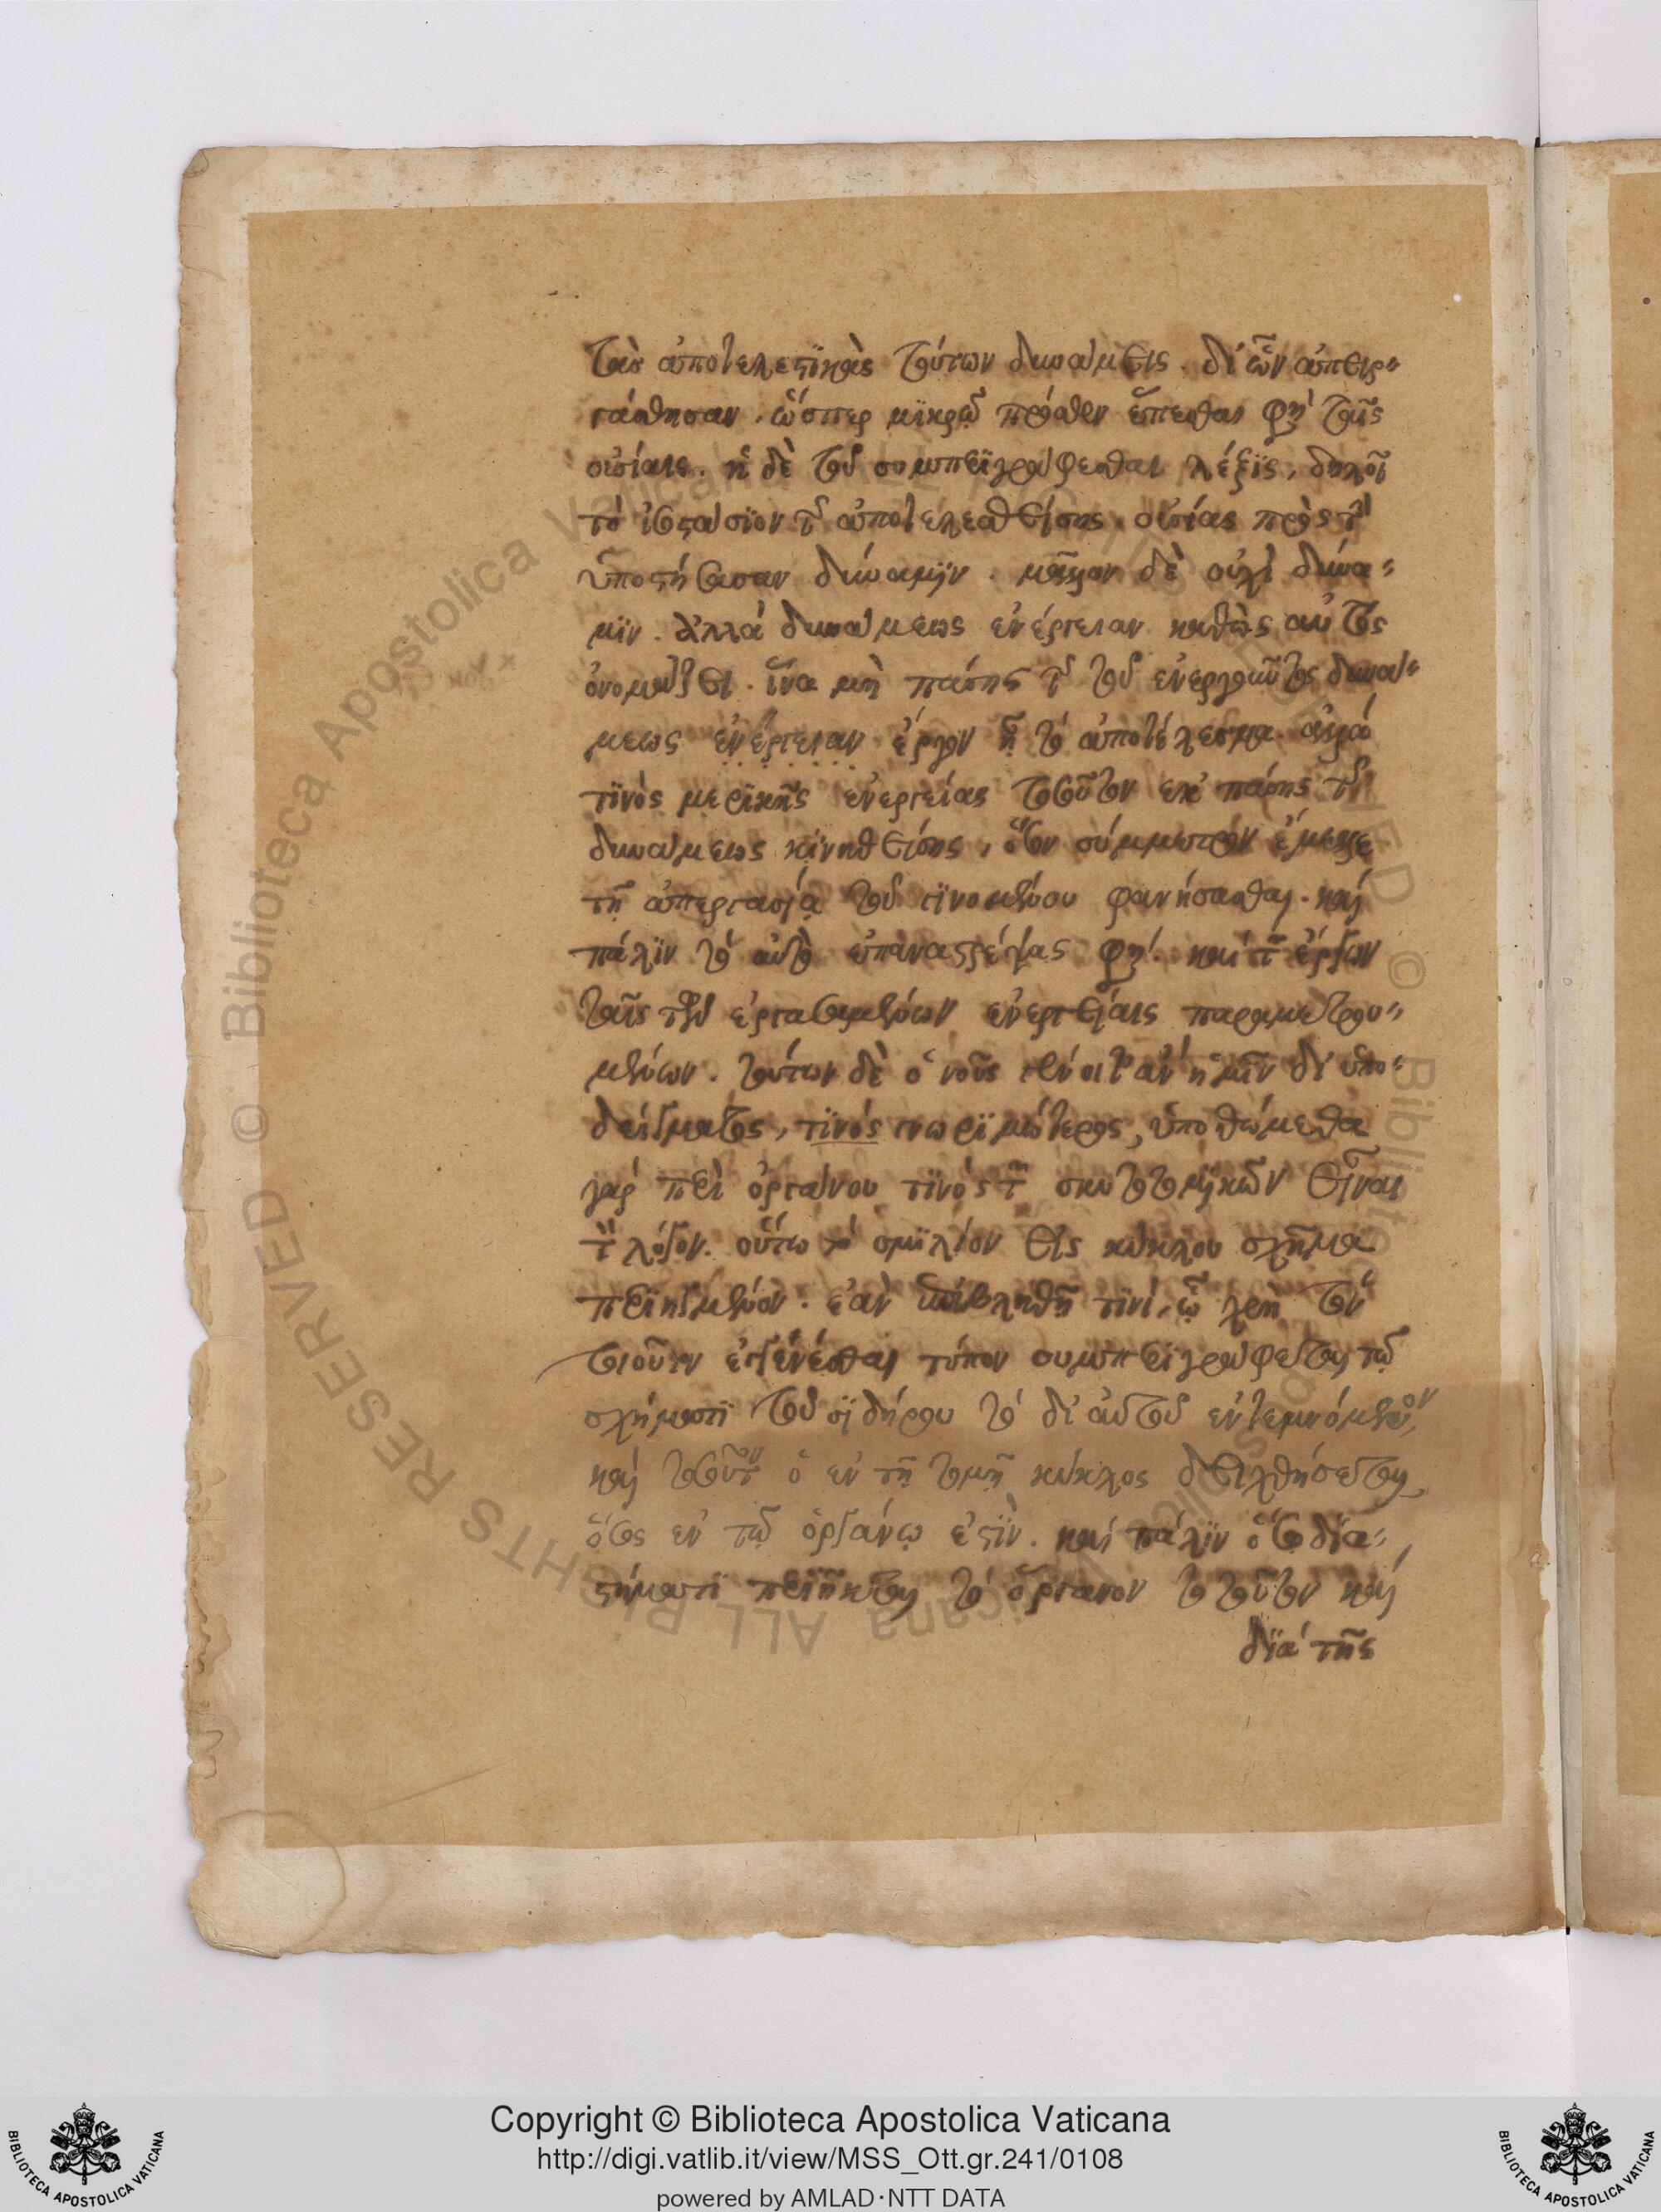 τὰς ἀποτελεστικὰς τούτων δυνάμεις. δι' ὧν ἀπειρ-
γάσθησαν, ὥσπερ μικρῷ πρόσθεν ἕπεσθαι φησὶ ταῖς
οὐσίαις. ἡ δὲ τοῦ συμπεριγράφεσθαι λέξις, δηλοῖ
τὸ ἰσοστάσιον τῆς ἀποτελεσθείσης οὐσίας πρὸς τὴν
ὑποστήσασαν δύναμιν. μᾶλλον δὲ οὐχὶ δύνα-
μιν. ἀλλὰ δυνάμεως ἐνέργειαν καθὼς αὐτὸς
ὀνομάζει. ἵνα μὴ πάσης τῆς τοῦ ἐνεργοῦντος δυνά-
μεως ἐνέργειαν ἔργον ᾖ τὸ ἀποτέλεσμα. ἀλλά
τινὸς μερικῆς ἐνεργείας τοσοῦτον ἐκ πάσης τῆς
δυνάμεως κινηθείσης, ὅσον σύμμετρον ἔμελλε
τῇ ἀπεργασίᾳ τοῦ γινομένου φανήσασθαι. καὶ
πάλιν τὸ αὐτὸ ἐπαναστρέψας φησί. καὶ τῶν ἔργων
ταῖς τῶν ἐργασαμένων ἐνεργείαις παραμετρου-
μένων. τούτων δὲ ὁ νοῦς γένοιτ' ἂν ἡμῖν δι' ὑπο-
δείγματος, τινός γνωριμώτερος, ὑποθώμεθα
γὰρ περὶ ὀργάνου τινός τῶν σκυτοτομικῶν εἶναι
τὸν λόγον. οὕτω τὸ σμιλίον εἰς κύκλου σχῆμα
περιηγμένον. ἐὰν ἐπιβληθῇ τινί, ᾧ χρὴ τὸν
τοιοῦτον ἐγγενέσθαι τύπον συμπεριγράφεται τῷ
σχήματι τοῦ σιδήρου τὸ δι' αὐτοῦ ἐντεμνόμενον,
καὶ τοσοῦτον ὁ ἐν τῇ τομῇ κύκλος δειχθήσεται,
ὅσος ἐν τῷ ὀργάνῳ ἐστίν. καὶ πάλιν ὅσῳ δια-
στήματι περιῆκται τὸ ὄργανον τοσοῦτον καὶ
διὰ τῆς
Copyright © Biblioteca Apostolica Vaticana
http://digi.vatlib.it/view/MSS_Ott.gr.241/0108
powered by AMLAD·NTT DATA